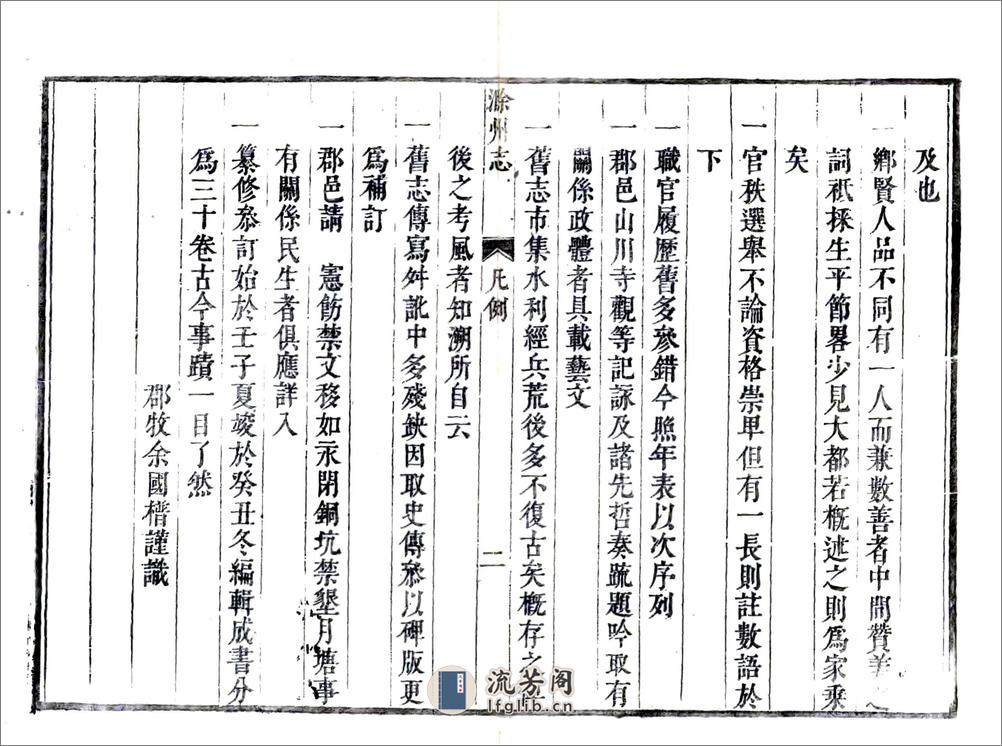 及也
一鄉賢人品不同有一人而兼數善者中間贊美之
詞祗採生平節畧少見大都若概述之則爲家乘
矣
一官秩選舉不論資格崇卑但有一長則註數語於
下
一職官履歷舊多參錯今照年表以次序列
一郡邑山川寺觀等記詠及諸先哲奏疏題吟取有
關係政體者具載藝文
一舊志市集水利經兵荒後多不復古矣概存之
滁州志
凡例
二
後之考風者知溯所自云
一舊志傳寫舛訛中多殘缺因取史傳叅以碑版更
爲補訂
一郡邑請 憲飭禁文移如永閉銅坑禁墾月塘事
有關係民生者俱應詳入
一纂修叅訂始於壬子夏竣於癸丑冬編輯成書分
爲三十卷古今事蹟一目了然
郡牧余國㮷謹識
流芳阁
lfglib.cn